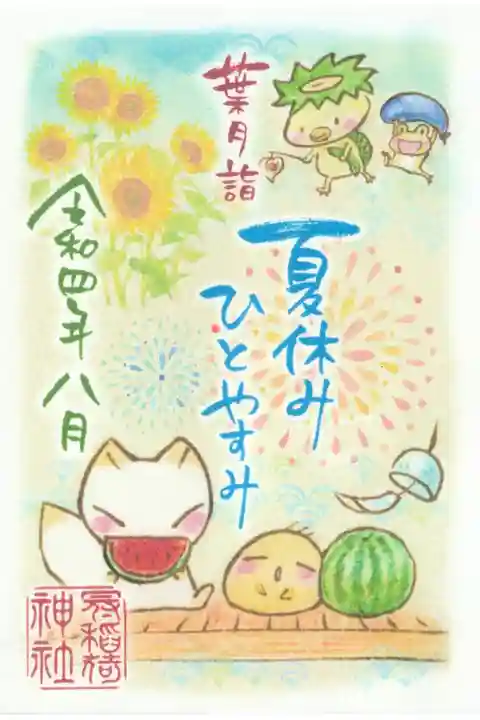 葉月詣
夏休み
ひとやすみ
令和四年八月
冠稲荷
神社